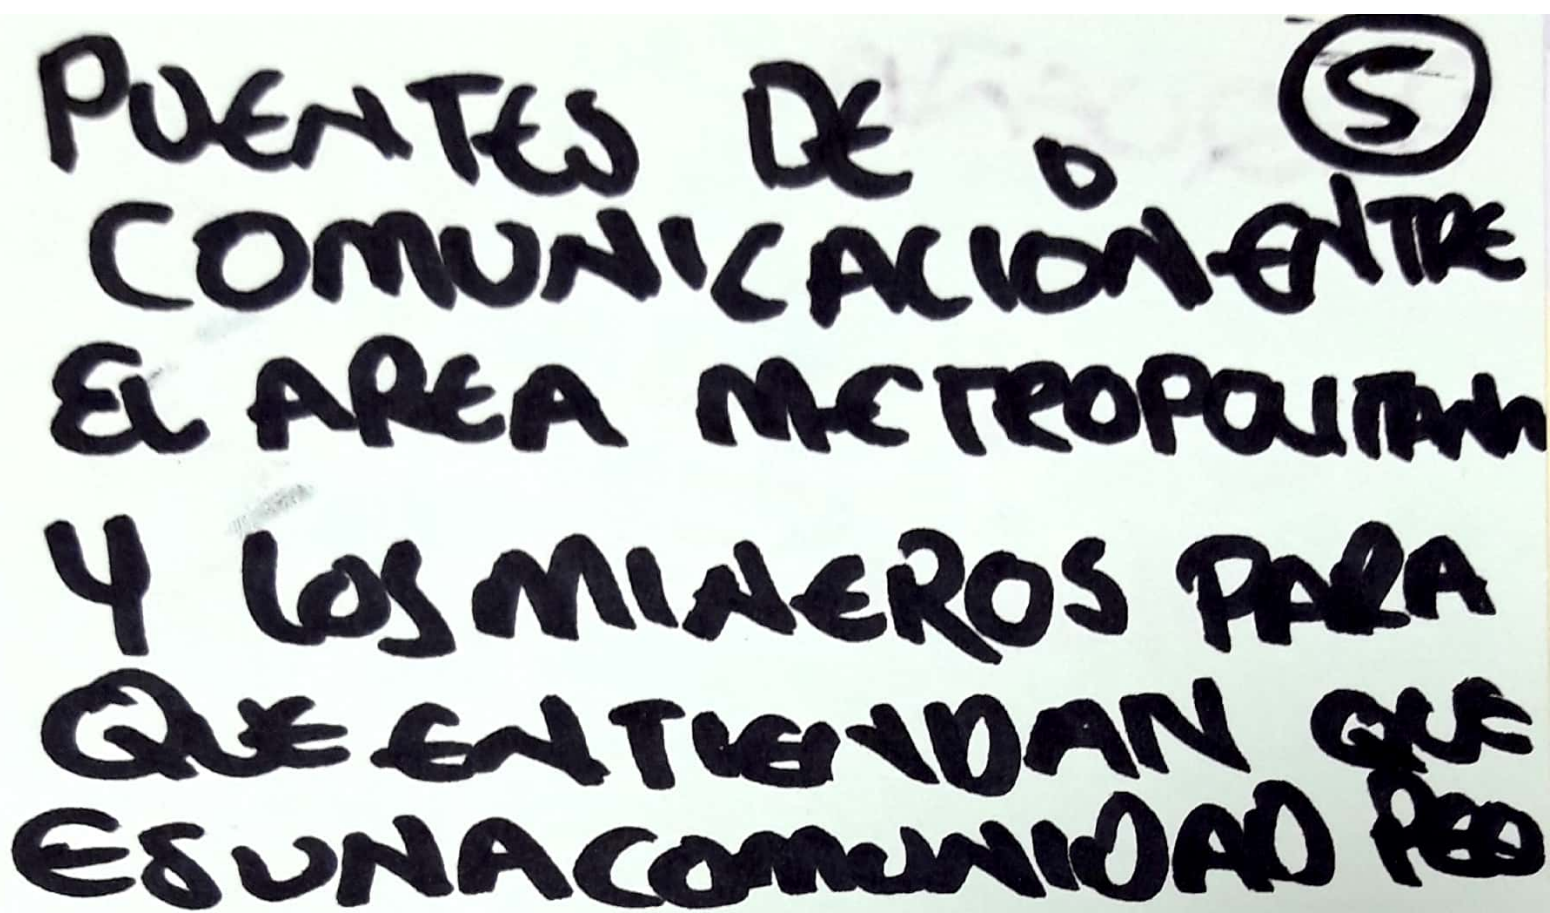 PUENTES DE S
COMUNICACION ENTRE
EL AREA METROPOLITANA
Y LOS MINEROS PARA
QUE ENTIENDAN QUE
ES UNA COMUNIDAD